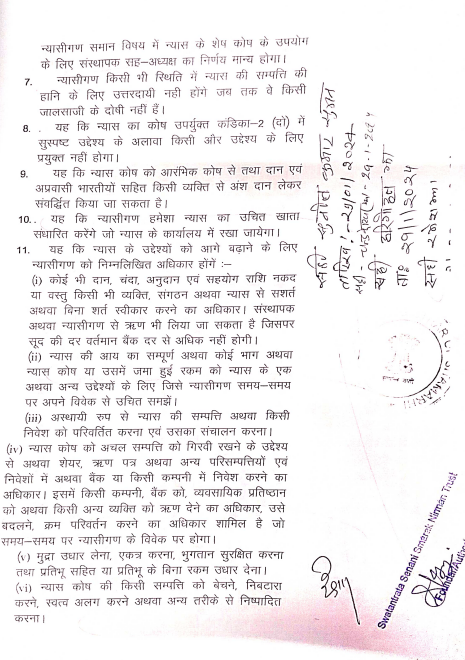 न्यासीगण समान विषय में न्यास के शेष कोष के उपयोग
के लिए संस्थापक सह–अध्यक्ष का निर्णय मान्य होगा।
7. न्यासीगण किसी भी स्थिति में न्यास की सम्पत्ति की
हानि के लिए उत्तरदायी नही होंगे जब तक वे किसी
जालसाजी के दोषी नहीं हैं।
8. . यह कि न्यास का कोष उपर्युक्त कंडिका–2 (दो) में
सुस्पष्ट उद्देश्य के अलावा किसी और उद्देश्य के लिए
प्रयुक्त नहीं होगा।
9. यह कि न्यास कोष को आरंभिक कोष से तथा दान एवं
अप्रवासी भारतीयों सहित किसी व्यक्ति से अंश दान लेकर
संवर्द्धित किया जा सकता है।
10. . यह कि न्यासीगण हमेशा न्यास का उचित खाता
संधारित करेंगे जो न्यास के कार्यालय में रखा जायेगा।
11. यह कि न्यास के उद्देश्यों को आगे बढ़ाने के लिए
न्यासीगण को निम्नलिखित अधिकार होंगें :–
(i) कोई भी दान, चंदा, अनुदान एवं सहयोग राशि नकद
या वस्तु किसी भी व्यक्ति, संगठन अथवा न्यास से सशर्त
अथवा बिना शर्त स्वीकार करने का अधिकार। संस्थापक
अथवा न्यासीगण से ऋण भी लिया जा सकता है जिसपर
सूद की दर वर्तमान बैंक दर से अधिक नहीं होगी।
(ii) न्यास की आय का सम्पूर्ण अथवा कोई भाग अथवा
न्यास कोष या उसमें जमा हुई रकम को न्यास के एक
अथवा अन्य उद्देश्यों के लिए जिसे न्यासीगण समय–समय
पर अपने विवेक से उचित समझें।
(iii) अस्थायी रुप से न्यास की सम्पत्ति अथवा किसी
निवेश को परिवर्तित करना एवं उसका संचालन करना।
(iv) न्यास कोष को अचल सम्पत्ति को गिरवी रखने के उद्देश्य
से अथवा शेयर, ऋण पत्र अथवा अन्य परिसम्पत्तियों एवं
निवेशों मे अथवा बैंक या किसी कम्पनी में निवेश करने का
अधिकार। इसमें किसी कम्पनी, बैंक को, व्यवसायिक प्रतिष्ठान
को अथवा किसी अन्य व्यक्ति को ऋण देने का अधिकार, उसे
बदलने, क्रम परिवर्तन करने का अधिकार शामिल है जो
समय–समय पर न्यासीगण के विवेक पर होगा।
(v) मुद्रा उधार लेना, एकत्र करना, भुगतान सुरक्षित करना
तथा प्रतिभू सहित या प्रतिभू के बिना रकम उधार देना।
(vi) न्यास कोष की किसी सम्पत्ति को बेचने, निबटारा
करने, स्वत्व अलग करने अथवा अन्य तरीके से निष्पादित
करना।
सही सुनील कुमार सुमन
तारीख:- २९/०१/२०२४
ता० २९/१/२०२४
Swatantrata Senani Smarak Nirman Trust